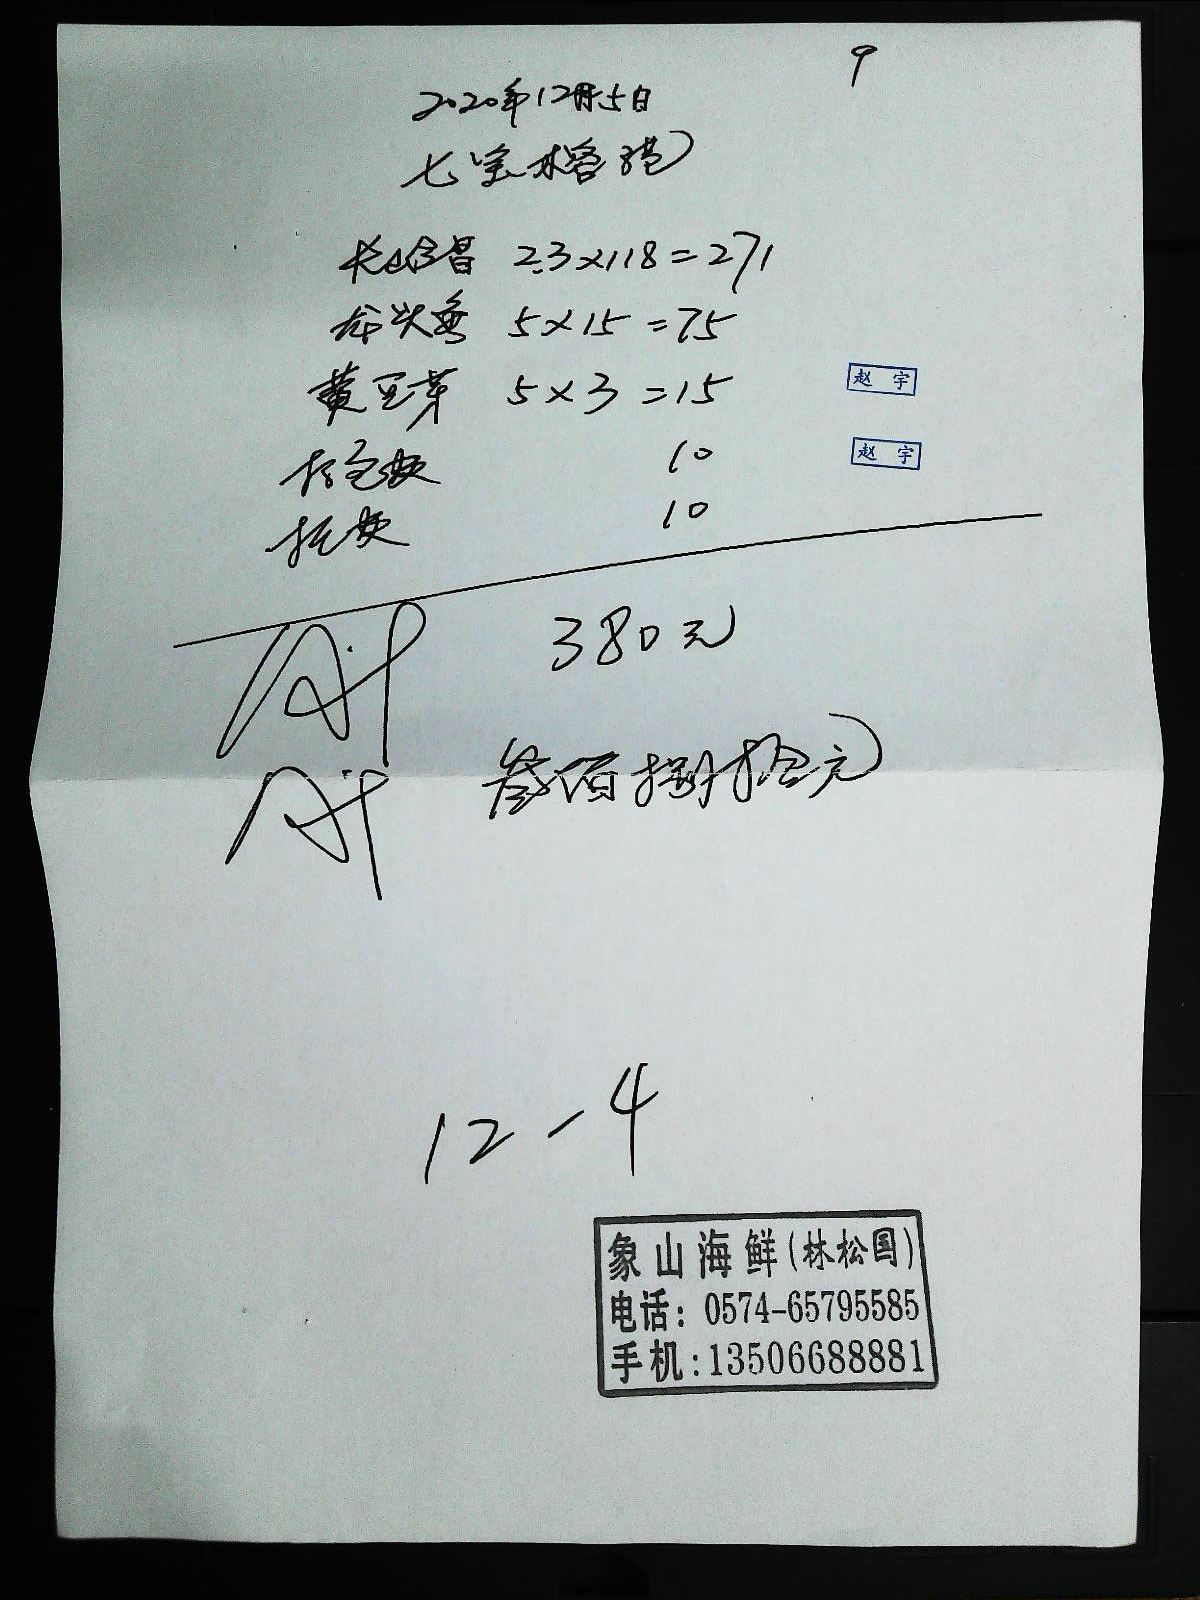 9
2020年12月5日
七宝水榕港
长山仓昌 2.3×118=271
龙头鱼 5×15=75
黄豆芽 5×3=15
赵宇
打包费 10
赵宇
托费 10
380元
叁佰捌拾元
12-4
象山海鲜(林松国)
电话: 0574-65795585
手机:13506688881